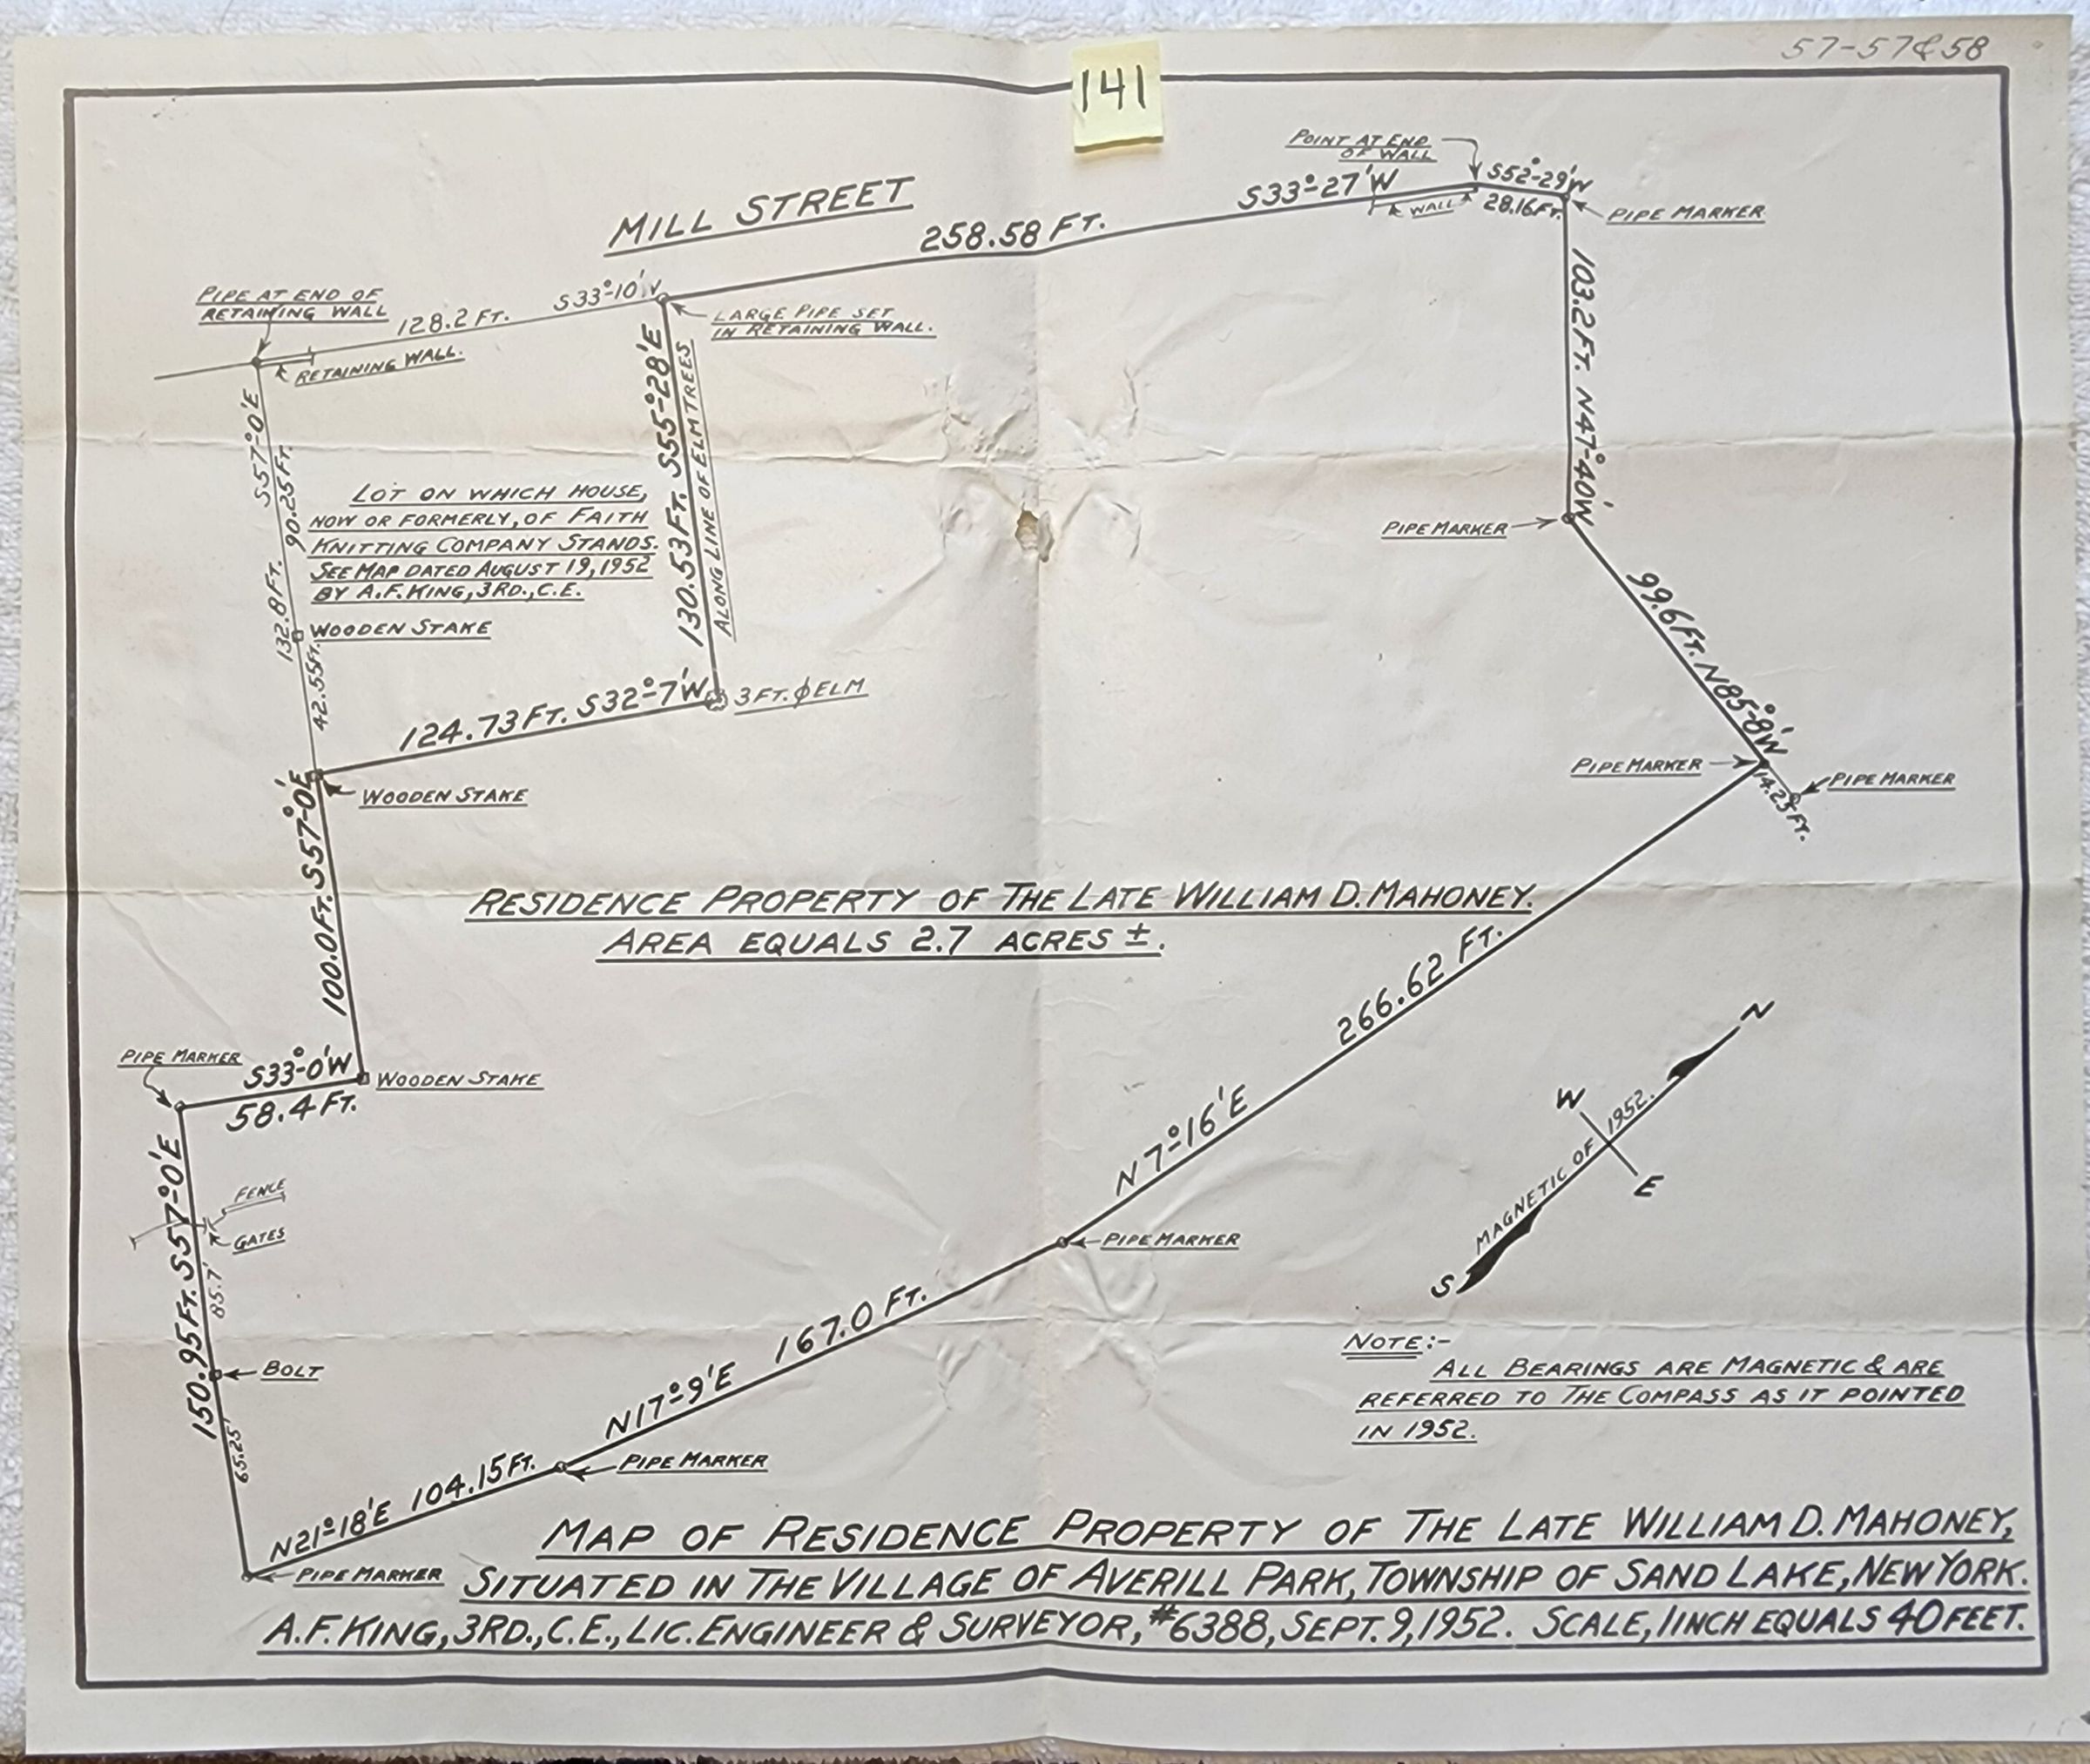 57-57&58
141
POINT AT END
OF WALL
S33°-27'W
S52°-29'W
WALL
28.16FT.
PIPE MARKER
MILL STREET
258.58 FT.
PIPE AT END OF
RETAINING WALL
128.2 FT.
S33°-10'W
LARGE PIPE SET
IN RETAINING WALL.
RETAINING WALL.
103.2FT. N47°-40'W
S57°-0'E
132.8FT.
90.25FT.
130.53FT. S55°-28'E
ALONG LINE OF ELM TREES
LOT ON WHICH HOUSE,
NOW OR FORMERLY, OF FAITH
KNITTING COMPANY STANDS.
SEE MAP DATED AUGUST 19, 1952
BY A.F. KING, 3RD., C.E.
PIPE MARKER
WOODEN STAKE
42.55FT.
99.6FT. N85°-8'W
124.73FT. S32°-7'W
3 FT. ϕ ELM
WOODEN STAKE
PIPE MARKER
PIPE MARKER
14.25FT.
100.0FT. S57°-0'E
RESIDENCE PROPERTY OF THE LATE WILLIAM D. MAHONEY.
AREA EQUALS 2.7 ACRES ±.
266.62 FT.
N7°-16'E
PIPE MARKER
S33°-0'W
58.4 FT.
WOODEN STAKE
N
W
MAGNETIC OF 1952.
E
S
150.95FT. S57°-0'E
FENCE
GATES
85.7'
PIPE MARKER
167.0 FT.
N17°-9'E
BOLT
65.25'
NOTE:-
ALL BEARINGS ARE MAGNETIC & ARE
REFERRED TO THE COMPASS AS IT POINTED
IN 1952.
PIPE MARKER
N21°-18'E 104.15FT.
PIPE MARKER
MAP OF RESIDENCE PROPERTY OF THE LATE WILLIAM D. MAHONEY,
SITUATED IN THE VILLAGE OF AVERILL PARK, TOWNSHIP OF SAND LAKE, NEW YORK.
A.F. KING, 3RD., C.E., LIC. ENGINEER & SURVEYOR, #6388, SEPT. 9, 1952. SCALE, 1 INCH EQUALS 40 FEET.